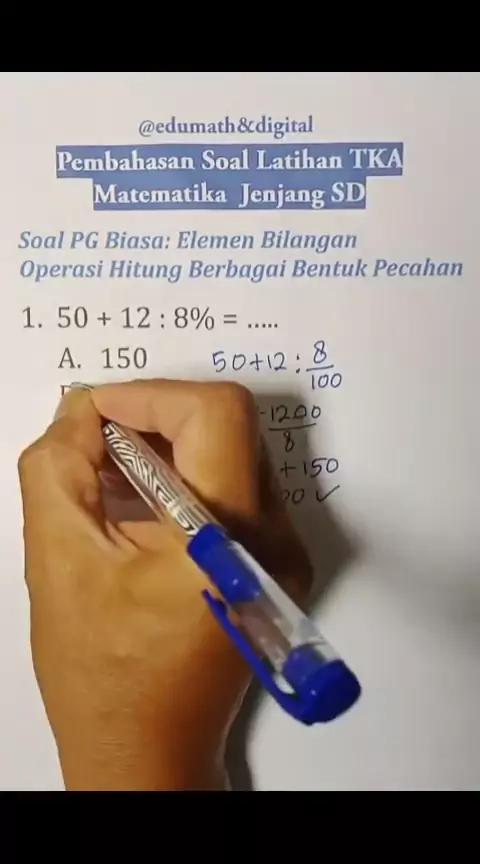 @edumath&digital
Pembahasan Soal Latihan TKA
Matematika Jenjang SD
Soal PG Biasa: Elemen Bilangan
Operasi Hitung Berbagai Bentuk Pecahan
1. 50 + 12 : 8% = .....
A. 150
50+12 : 8/100
1200/8
+150
00 ✓